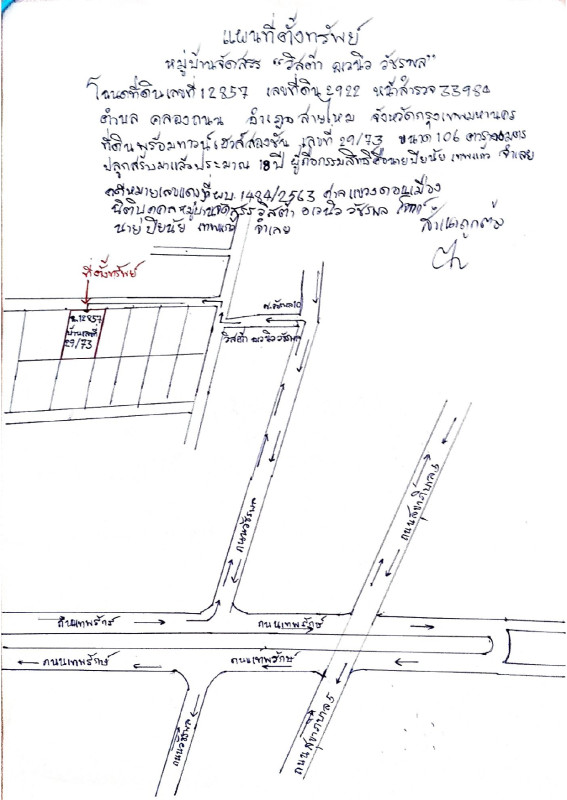 แผนที่ตั้งทรัพย์
หมู่บ้านจัดสรร "วิสต้า อเวนิว วัชรพล"
โฉนดที่ดินเลขที่ 12857 เลขที่ดิน 2922 หน้าสำรวจ 33954
ตำบล คลองถนน อำเภอ สายไหม จังหวัดกรุงเทพมหานคร
ที่ดินพร้อมทาวน์เฮาส์สองชั้น เลขที่ 29/73 ขนาด 106 ตารางเมตร
ปลูกสร้างมาแล้วประมาณ 18 ปี ผู้ถือกรรมสิทธิ์ชื่อนายปิยนัย เทพแก้ว จำเลย
คดีหมายเลขแดงที่ ผบ. 1424/2563 ศาลแขวงดอนเมือง
นิติบุคคลหมู่บ้านจัดสรร วิสต้า อเวนิว วัชรพล โจทก์
นายปิยนัย เทพแก้ว จำเลย
สำเนาถูกต้อง
ที่ตั้งทรัพย์
ฉ.12857
บ้านเลขที่
29/73
ซ.วัชรพล 10
วิสต้า อเวนิว วัชรพล
ถนนวัชรพล
ถนนสุขาภิบาล 5
ถนนเทพรักษ์
ถนนเทพรักษ์
ถนนเทพรักษ์
ถนนเทพรักษ์
ถนนวัชรพล
ถนนสุขาภิบาล 5